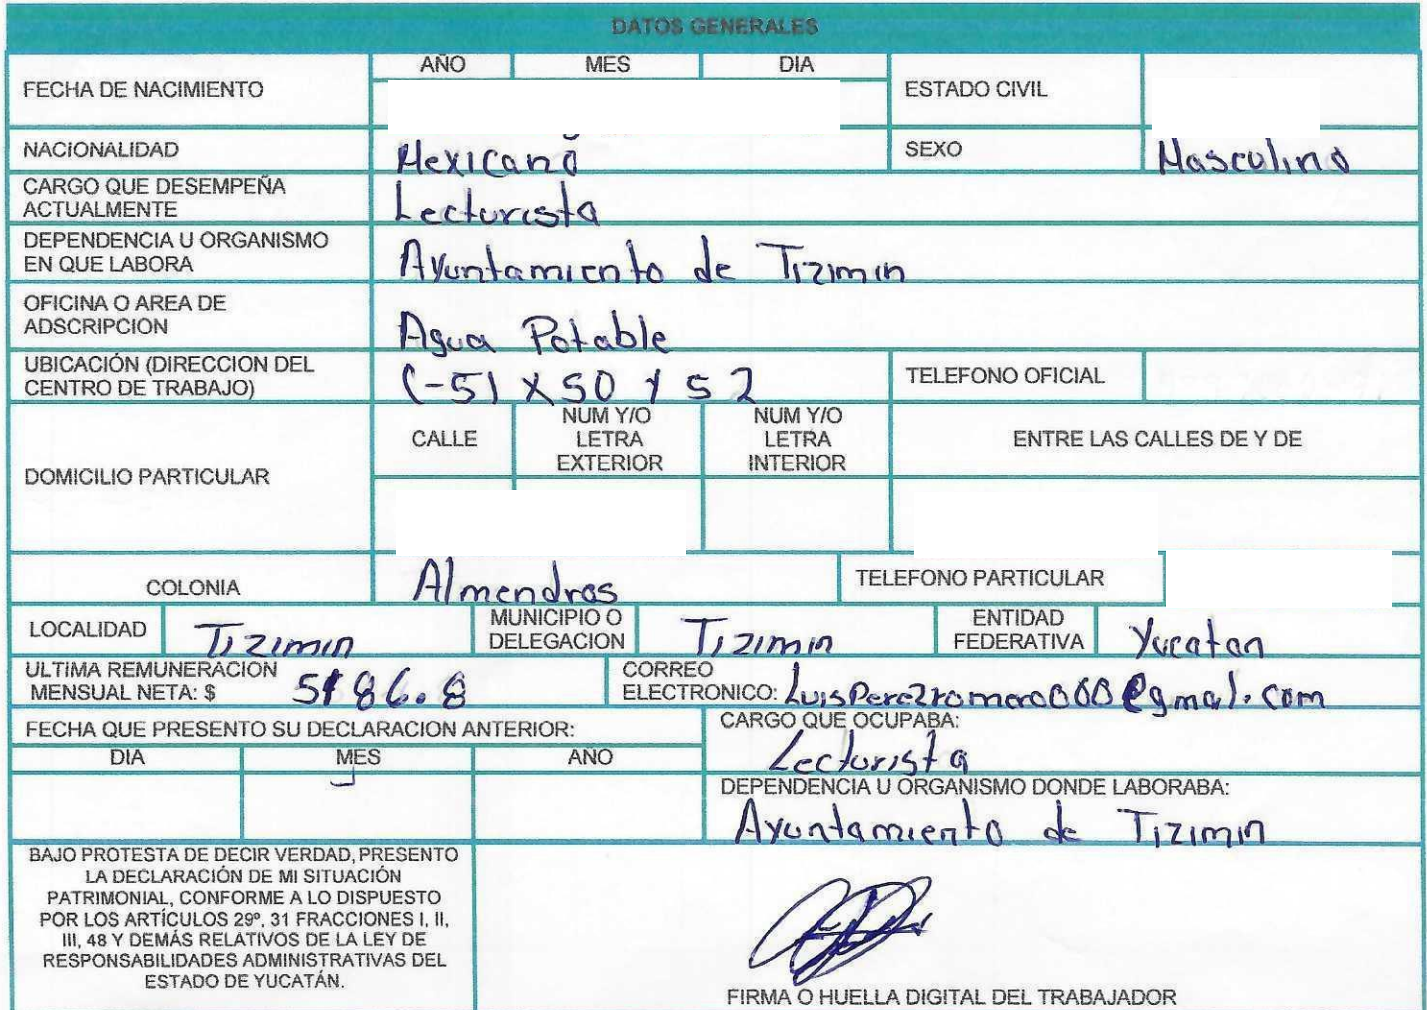 DATOS GENERALES
FECHA DE NACIMIENTO
AÑO MES DIA
ESTADO CIVIL
NACIONALIDAD Mexicano SEXO Masculino
CARGO QUE DESEMPEÑA
ACTUALMENTE Lecturista
DEPENDENCIA U ORGANISMO
EN QUE LABORA Ayuntamiento de Tizimin
OFICINA O AREA DE
ADSCRIPCION Agua Potable
UBICACIÓN (DIRECCION DEL
CENTRO DE TRABAJO) C-51 x 50 y 52 TELEFONO OFICIAL
DOMICILIO PARTICULAR
CALLE
NUM Y/O
LETRA
EXTERIOR
NUM Y/O
LETRA
INTERIOR
ENTRE LAS CALLES DE Y DE
COLONIA Almendros TELEFONO PARTICULAR
LOCALIDAD Tizimin
MUNICIPIO O
DELEGACION Tizimin
ENTIDAD
FEDERATIVA Yucatan
ULTIMA REMUNERACION
MENSUAL NETA: $ 5186.8
CORREO
ELECTRONICO: LuisPerezromero000@gmal.com
FECHA QUE PRESENTO SU DECLARACION ANTERIOR:
DIA MES AÑO
CARGO QUE OCUPABA:
Lecturista
DEPENDENCIA U ORGANISMO DONDE LABORABA:
Ayuntamiento de Tizimin
BAJO PROTESTA DE DECIR VERDAD, PRESENTO
LA DECLARACIÓN DE MI SITUACIÓN
PATRIMONIAL, CONFORME A LO DISPUESTO
POR LOS ARTÍCULOS 29º, 31 FRACCIONES I, II,
III, 48 Y DEMÁS RELATIVOS DE LA LEY DE
RESPONSABILIDADES ADMINISTRATIVAS DEL
ESTADO DE YUCATÁN.
FIRMA O HUELLA DIGITAL DEL TRABAJADOR